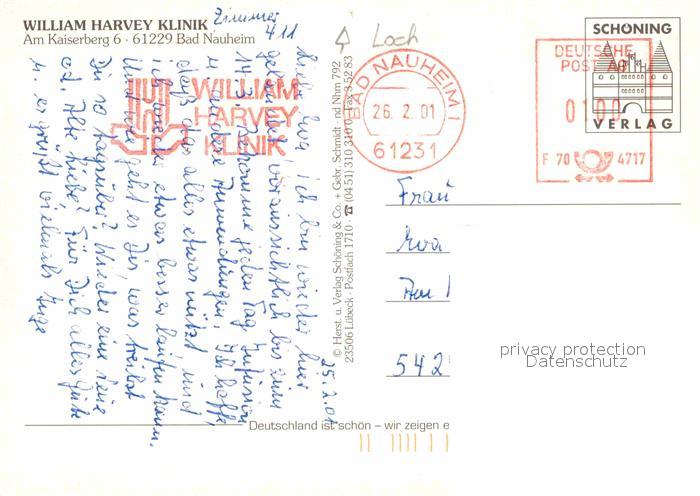 WILLIAM HARVEY KLINIK
Am Kaiserberg 6 · 61229 Bad Nauheim
Zimmer
411
Loch
25.2.01
ich bin wieder hier
voraussichtlich bis zum
14.3. Bekomme jeden Tag Infusion
u. andere Anwendungen. Ich hoffe,
daß das alles etwas nützt und
ich etwas besser laufen kann.
Und wie geht es Dir, was treibst
Du so tagsüber? Wieder eine neue
Für Dich alles Gute
u. es grüßt vielmals Inge
WILLIAM
HARVEY
KLINIK
© Herst. u. Verlag Schöning & Co. + Gebr. Schmidt · Ind Nhm 792
23506 Lübeck · Postfach 1710 · ☎ (04 51) 310 34 0 · Fax 3 52 83
BAD NAUHEIM 1
26. 2. 01
61231
SCHÖNING
VERLAG
DEUTSCHE
POST AG
0100
F 70 4717
Frau
Eva
Am
542
privacy protection
Datenschutz
Deutschland ist schön – wir zeigen e